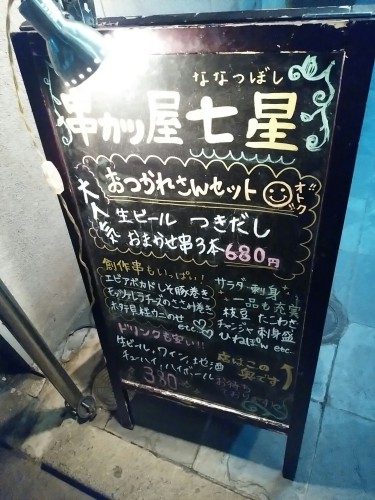 ななつぼし
串カツ屋 七星
おつかれさんセット
オトク
大人気
生ビール つきだし
おまかせ串3本 680円
創作串もいっぱい!
エビアボカドしそ豚巻き
モッツァレラチーズのささみ巻き
ホタテ貝柱うにのせ
etc
サラダ・刺身
一品も充実
枝豆 たこわさ
チャンジャ 刺身盛
ひねぽん etc
ドリンクも安い!!
生ビール、ワイン、地酒
チューハイ、ハイボール
330
店はこの
奥です